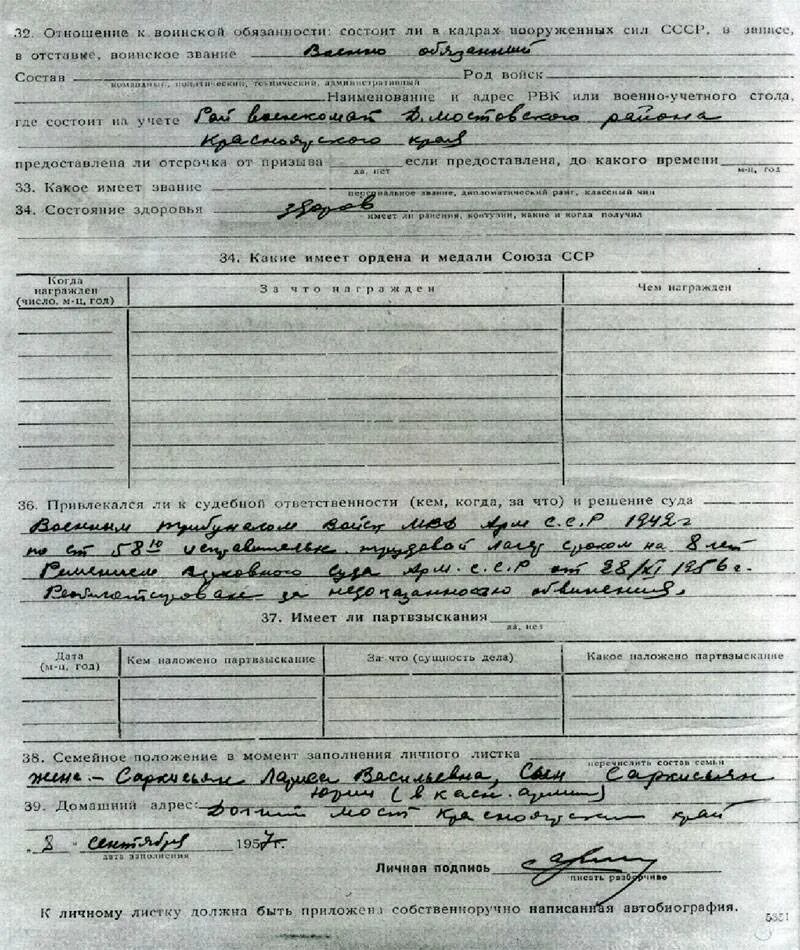 32. Отношение к воинской обязанности: состоит ли в кадрах вооруженных сил СССР, в запасе,
в отставке, воинское звание Военно обязанный
Состав Род войск
командный, политический, технический, административный
Наименование и адрес РВК или военно-учетного стола,
где состоит на учете Рай военкомат Д. Мостовского района
Красноярского края
предоставлена ли отсрочка от призыва если предоставлена, до какого времени
да, нет м-ц, год
33. Какое имеет звание
персональное звание, дипломатический ранг, классный чин
34. Состояние здоровья здоров
имеет ли ранения, контузии, какие и когда получил
34. Какие имеет ордена и медали Союза ССР
Когда награжден (число, м-ц, год) За что награжден Чем награжден
36. Привлекался ли к судебной ответственности (кем, когда, за что) и решение суда
Военным трибуналом Войск МВД Арм С.С.Р 1942г
по ст 58¹⁰ исправительн. трудовой лагер сроком на 8 лет
Решением Верховного Суда Арм. С.С.Р от 28/XI 1956 г.
Реабилитирован за недоказанностью обвинения.
37. Имеет ли партвзыскания
да, нет
Дата (м-ц, год) Кем наложено партвзыскание За что (сущность дела) Какое наложено партвзыскание
38. Семейное положение в момент заполнения личного листка
перечислить состав семьи
жена - Саркисьян Лариса Васильевна, Сын Саркисьян
Юрий (в армии)
39. Домашний адрес: Долгий мост Красноярский край
"8" сентября 1957г.
дата заполнения
Личная подпись
писать разборчиво
К личному листку должна быть приложена собственноручно написанная автобиография.